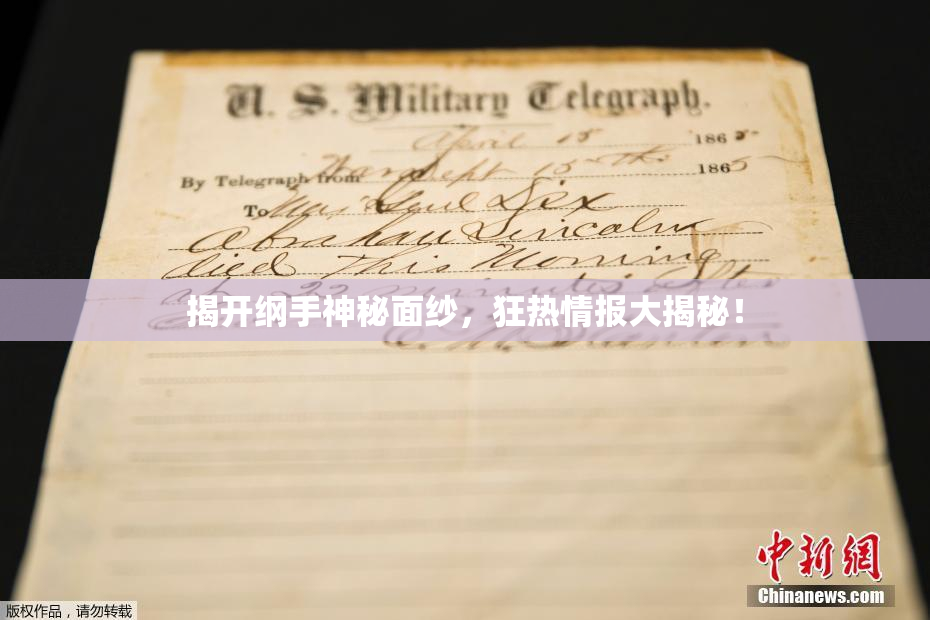 U. S. Military Telegraph.
April 15 1865
By Telegraph from War Dept 15th 1865
To Maj Genl Dix
Abraham Lincoln
died This Morning
at 22 minutes after
揭开纲手神秘面纱，狂热情报大揭秘！
中新网
Chinanews.com
版权作品，请勿转载